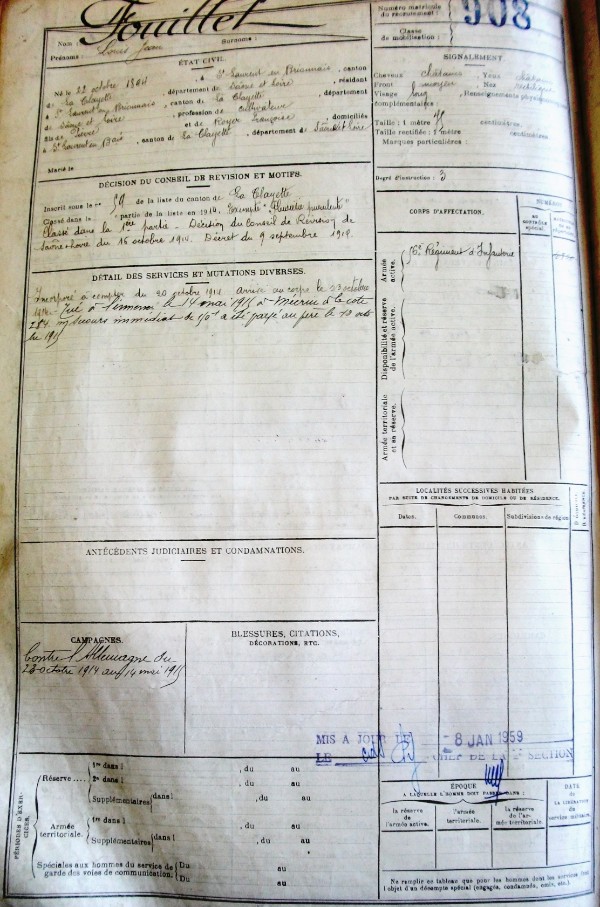 Fouillet
Numéro matricule
du recrutement :
908
Classe
de mobilisation :
Nom :
Prénoms : Louis Jean
Surnoms :
ÉTAT CIVIL.
Né le 22 octobre 1894, à St Laurent en Brionnais, canton
de La Clayette, département de Saône et Loire, résidant
à St Laurent en Brionnais, canton de La Clayette, département
de Saône et Loire, profession de cultivateur
fils de Pierre et de Françoise, domiciliés
à St Laurent en Brionnais, canton de La Clayette, département de Saône et Loire
Marié le
SIGNALEMENT
Cheveux châtains Yeux
Front moyen Nez rectiligne
Visage long Renseignements physionomiques
complémentaires
Taille : 1 mètre centimètres.
Taille rectifiée : 1 mètre centimètres.
Marques particulières :
Degré d'instruction : 3
DÉCISION DU CONSEIL DE RÉVISION ET MOTIFS.
Inscrit sous le n° 59 de la liste du canton de La Clayette
Classé dans la partie de la liste en 1914. Exempté
Classé dans la 1ère partie - Décision du Conseil de Révision de
Saône & Loire du 16 octobre 1914. Décret du 9 septembre 1914.
CORPS D'AFFECTATION.
NUMÉROS
au contrôle spécial.
Armée active.
Régiment d'Infanterie
Disponibilité et réserve de l'armée active.
Armée territoriale et sa réserve.
DÉTAIL DES SERVICES ET MUTATIONS DIVERSES.
Incorporé à compter du 20 octobre 1914 arrivé au corps le 23 octobre
1914. Tué à l'ennemi le 14 mai 1915 à Mécrin à la cote
254 secours immédiat de 150f a été payé au père le 10 octo
bre 1915
LOCALITÉS SUCCESSIVES HABITÉES
PAR SUITE DE CHANGEMENTS DE DOMICILE OU DE RÉSIDENCE.
Dates.
Communes.
Subdivisions de région.
ANTÉCÉDENTS JUDICIAIRES ET CONDAMNATIONS.
CAMPAGNES.
Contre l'Allemagne du
23 octobre 1914 au 14 mai 1915
BLESSURES, CITATIONS,
DÉCORATIONS, ETC.
MIS A JOUR LE 8 JAN 1959
LE CHEF DE LA SECTION
PÉRIODES D'EXERCICES.
Réserve....
1re dans l , du au
2e dans l , du au
Supplémentaires dans l , du au
Armée territoriale.
1re dans l , du au
Supplémentaires dans l , du au
Spéciales aux hommes du service de
garde des voies de communication.
Du au
Du au
ÉPOQUE
A LAQUELLE L'HOMME DOIT PASSER DANS :
la réserve de l'armée active.
l'armée territoriale.
la réserve de l'armée territoriale.
DATE
de
LA LIBÉRATION
du
service militaire.
Ne remplir ce tableau que pour les hommes dont les services font
l'objet d'un décompte spécial (engagés, condamnés, omis, etc.)